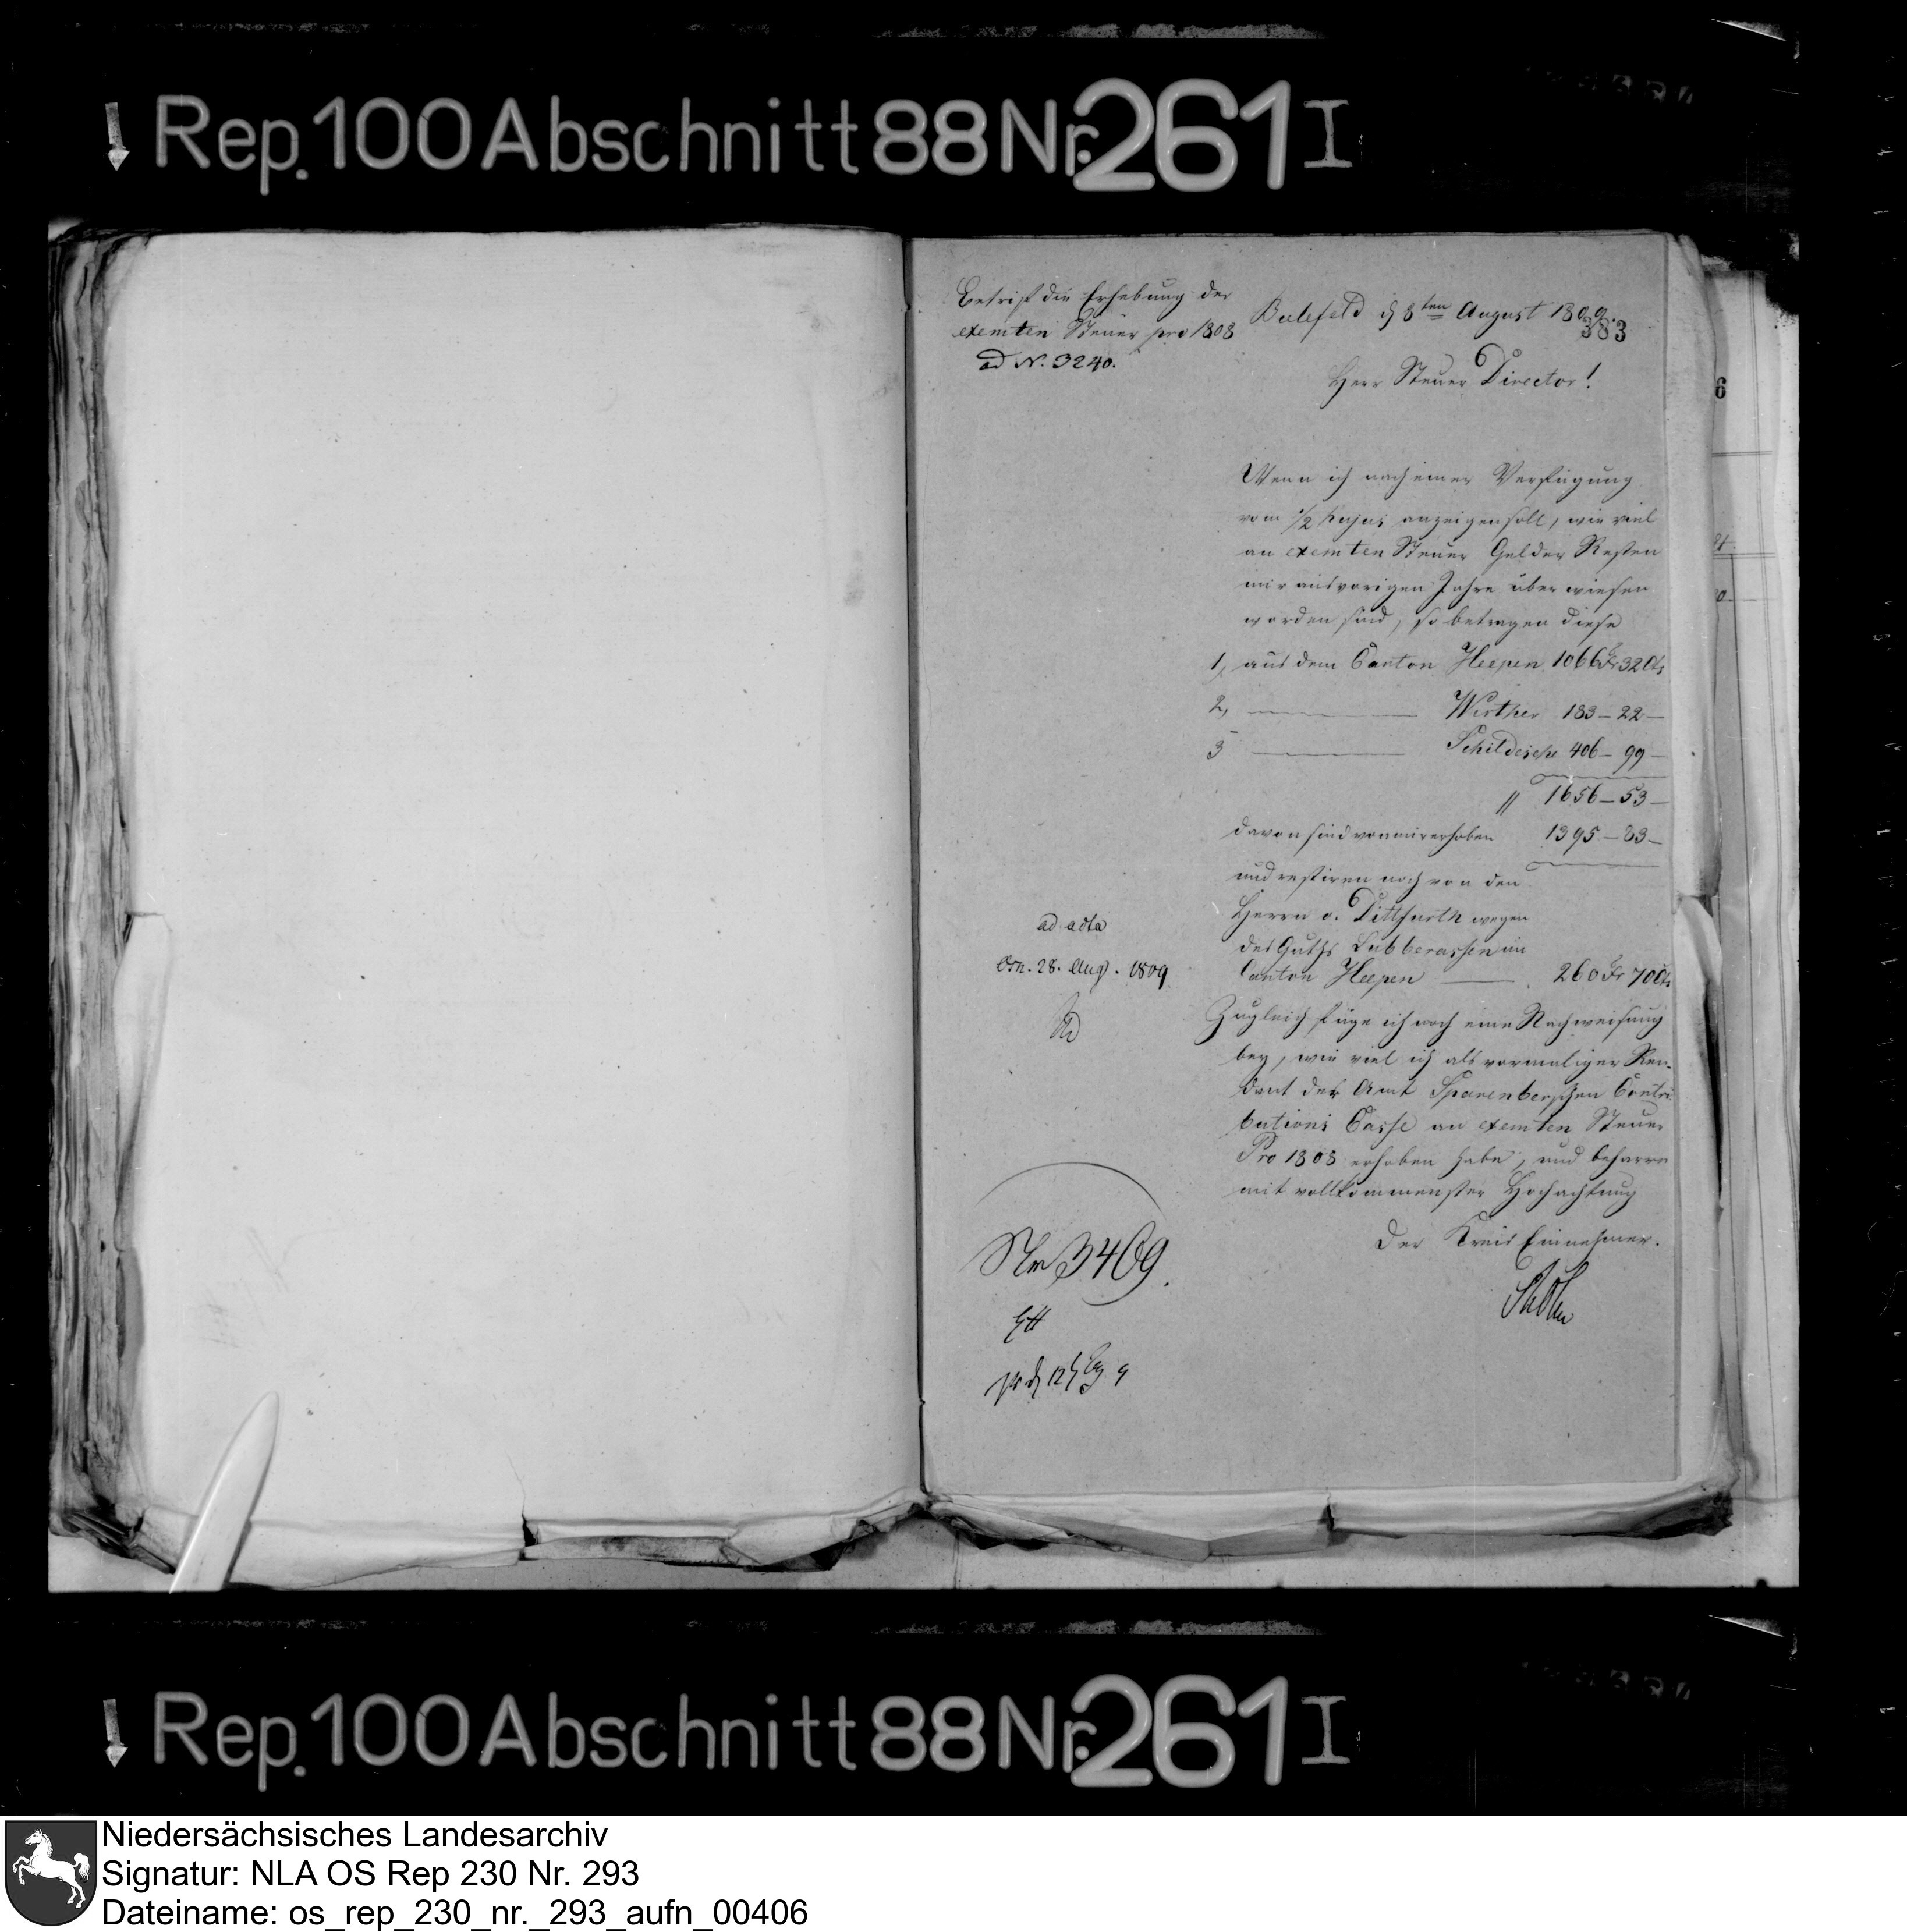 Rep. 100 Abschnitt 88 Nr. 261 I
Betrift die Erhebung der
exemten Steuer pro 1808
ad N. 3240.
Bielefeld d 8ten August 1809.
383
Herr Steuer Director!
Wenn ich nach einer Verfügung
vom hujus anzeigen soll, wie viel
an exemten Steuer Gelder Resten
mir aus vorigen Jahre überwiesen
worden sind, so betragen diese
1, aus dem Canton Heepen 1066 Fr 32 Cts
2, — Werther 183 – 22 –
3 — Schildesche 406 – 99 –
" 1656 – 53 –
davon sind von mir erhoben 1395 – 83 –
und restiren noch von den
Herrn v. Dittfurth wegen
des Guths Lübberassen im
Canton Heepen — 260 Fr 70 Cts
Zugleich füge ich noch eine Nachweisung
bey, wie viel ich als vormaliger Ren-
dant der Amt Sparenbergschen Contri
butions Casse an exemten Steuer
Pro 1808 erhoben habe, und beharre
mit vollkommenster Hochachtung
Der Kreis Einnehmer.
ad acta
Osn. 28. Aug. 1809
Nr 3409.
6
Rep. 100 Abschnitt 88 Nr. 261 I
Niedersächsisches Landesarchiv
Signatur: NLA OS Rep 230 Nr. 293
Dateiname: os_rep_230_nr._293_aufn_00406